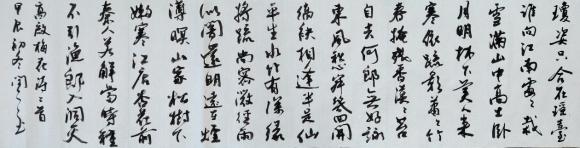 瓊姿只合在瑤臺
誰向江南處々栽
雪滿山中高士臥
月明林下美人来
寒依疏影蕭々竹
春掩殘香漠々苔
自去何郎無好詠
東風愁寂幾回開
縞袂相逢半是仙
平生水竹有深緣
將疏尚密微經雨
似闇還明遠在煙
薄暝山家松樹下
嫩寒江店杏花前
秦人若解當時種
不引漁郎入洞天
高啟梅花詩二首
甲辰初冬